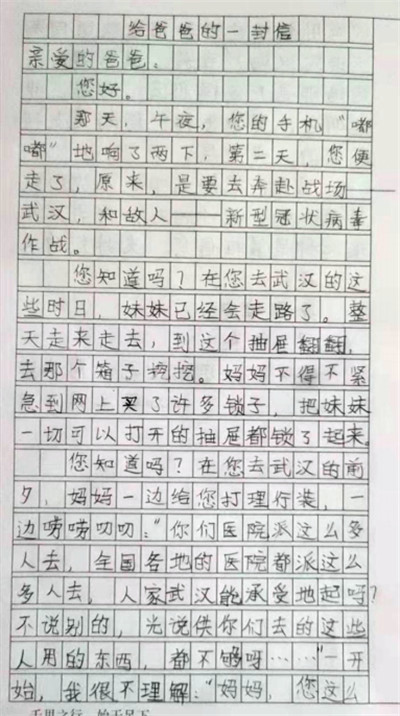 给爸爸的一封信
亲爱的爸爸:
您好。
那天,午夜,您的手机“嘟
嘟”地响了两下.第二天,您便
走了,原来,是要去奔赴战场——
武汉,和故人——新型冠状病毒
作战。
您知道吗?在您去武汉的这
些时日,妹妹已经会走路了。整
天走来走去,到这个抽屉翻翻,
去那个箱子挖挖。妈妈不得不紧
急到网上买了许多锁子,把妹妹
一切可以打开的抽屉都锁了起来。
您知道吗?在您去武汉的前
夕,妈妈一边给您打理行装,一
边唠唠叨叨:“你们医院派这么多
人去,全国各地的医院都派这么
多人去,人家武汉能承受地起吗?
不说别的,光说供你们去的这些
人用的东西,都不够呀……”一开
始,我很不理解:“妈妈,您这么
千里之行,始于足下